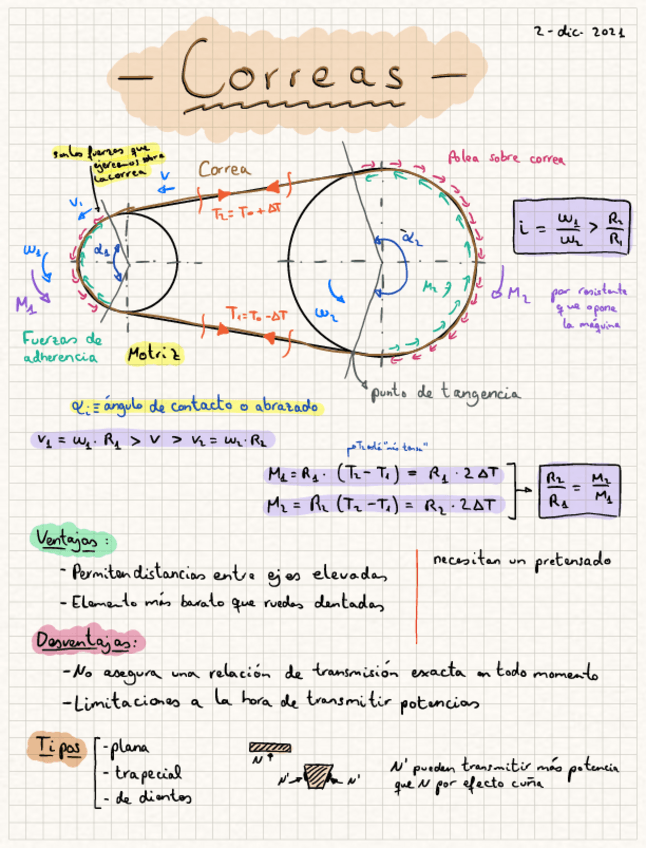 2-dic. 2021
- Correas -
son las fuerzas que
ejercemos sobre
la correa
Correa
Polea sobre correa
V
V₁
T₂ = T₀ + ΔT
i = ω₁/ω₂ > R₂/R₁
α₁
α₂
ω₁
M₁
ω₂
M₂
M₂
par resistente
que opone
la máquina
T₁ = T₀ - ΔT
Fuerzas de
adherencia
Motriz
punto de tangencia
αᵢ ≡ ángulo de contacto o abrazado
v₁ = ω₁ · R₁ > v > v₂ = ω₂ · R₂
T₂ está "más tensa"
M₁ = R₁ · (T₂ - T₁) = R₁ · 2ΔT
M₂ = R₂ (T₂ - T₁) = R₂ · 2ΔT
R₂/R₁ = M₂/M₁
Ventajas:
- Permiten distancias entre ejes elevadas
- Elemento más barato que ruedas dentadas
necesitan un pretensado
Desventajas:
- No asegura una relación de transmisión exacta en todo momento
- Limitaciones a la hora de transmitir potencias
Tipos
- plana
- trapecial
- de dientes
N
N'
N'
N' pueden transmitir más potencia
que N por efecto cuña